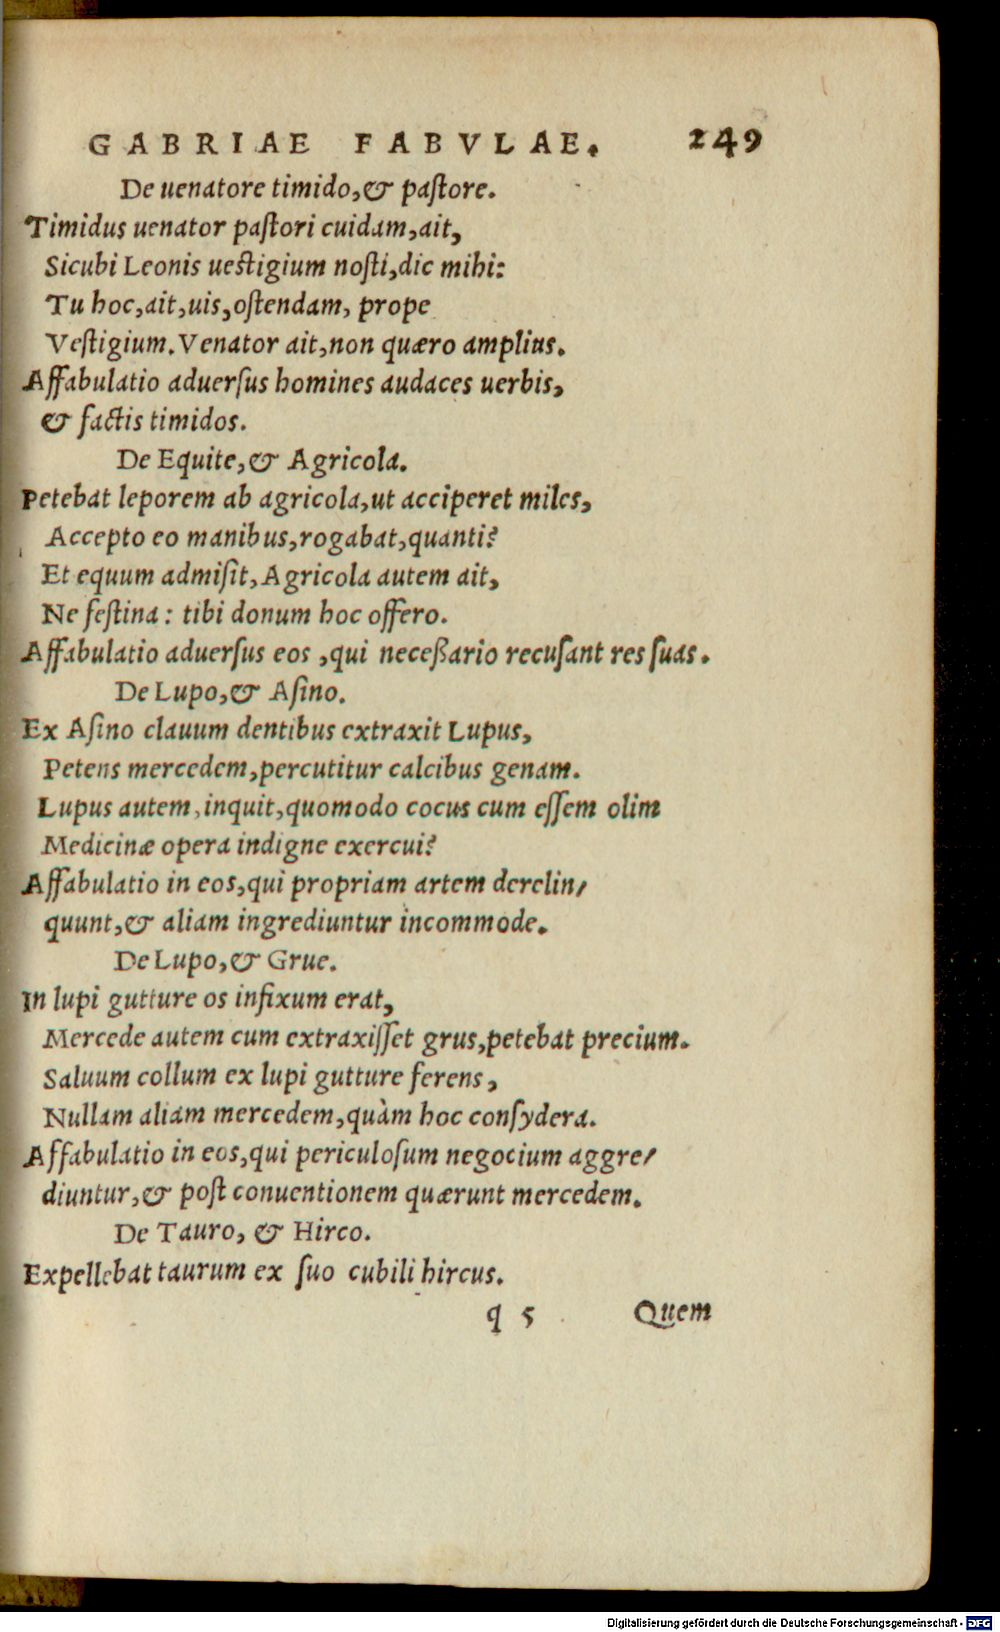 GABRIAE FABVLAE. 249
De uenatore timido,& pastore.
Timidus uenator pastori cuidam,ait,
Sicubi Leonis uestigium nosti,dic mihi:
Tu hoc,ait,uis,ostendam, prope
Vestigium. Venator ait,non quæro amplius.
Affabulatio aduersus homines audaces uerbis,
& factis timidos.
De Equite,& Agricola.
Petebat leporem ab agricola,ut acciperet miles,
Accepto eo manibus,rogabat,quanti?
Et equum admisit, Agricola autem ait,
Ne festina: tibi donum hoc offero.
Affabulatio aduersus eos ,qui neceßario recusant res suas.
De Lupo,& Asino.
Ex Asino clauum dentibus extraxit Lupus,
Petens mercedem,percutitur calcibus genam.
Lupus autem,inquit,quomodo cocus cum essem olim
Medicinæ opera indigne exercui?
Affabulatio in eos,qui propriam artem derelin/
quunt,& aliam ingrediuntur incommode.
De Lupo,& Grue.
In lupi gutture os infixum erat,
Mercede autem cum extraxisset grus,petebat precium.
Saluum collum ex lupi gutture ferens,
Nullam aliam mercedem,quàm hoc consydera.
Affabulatio in eos,qui periculosum negocium aggre/
diuntur,& post conuentionem quærunt mercedem.
De Tauro, & Hirco.
Expellebat taurum ex suo cubili hircus.
q 5 Quem
Digitalisierung gefördert durch die Deutsche Forschungsgemeinschaft - DFG